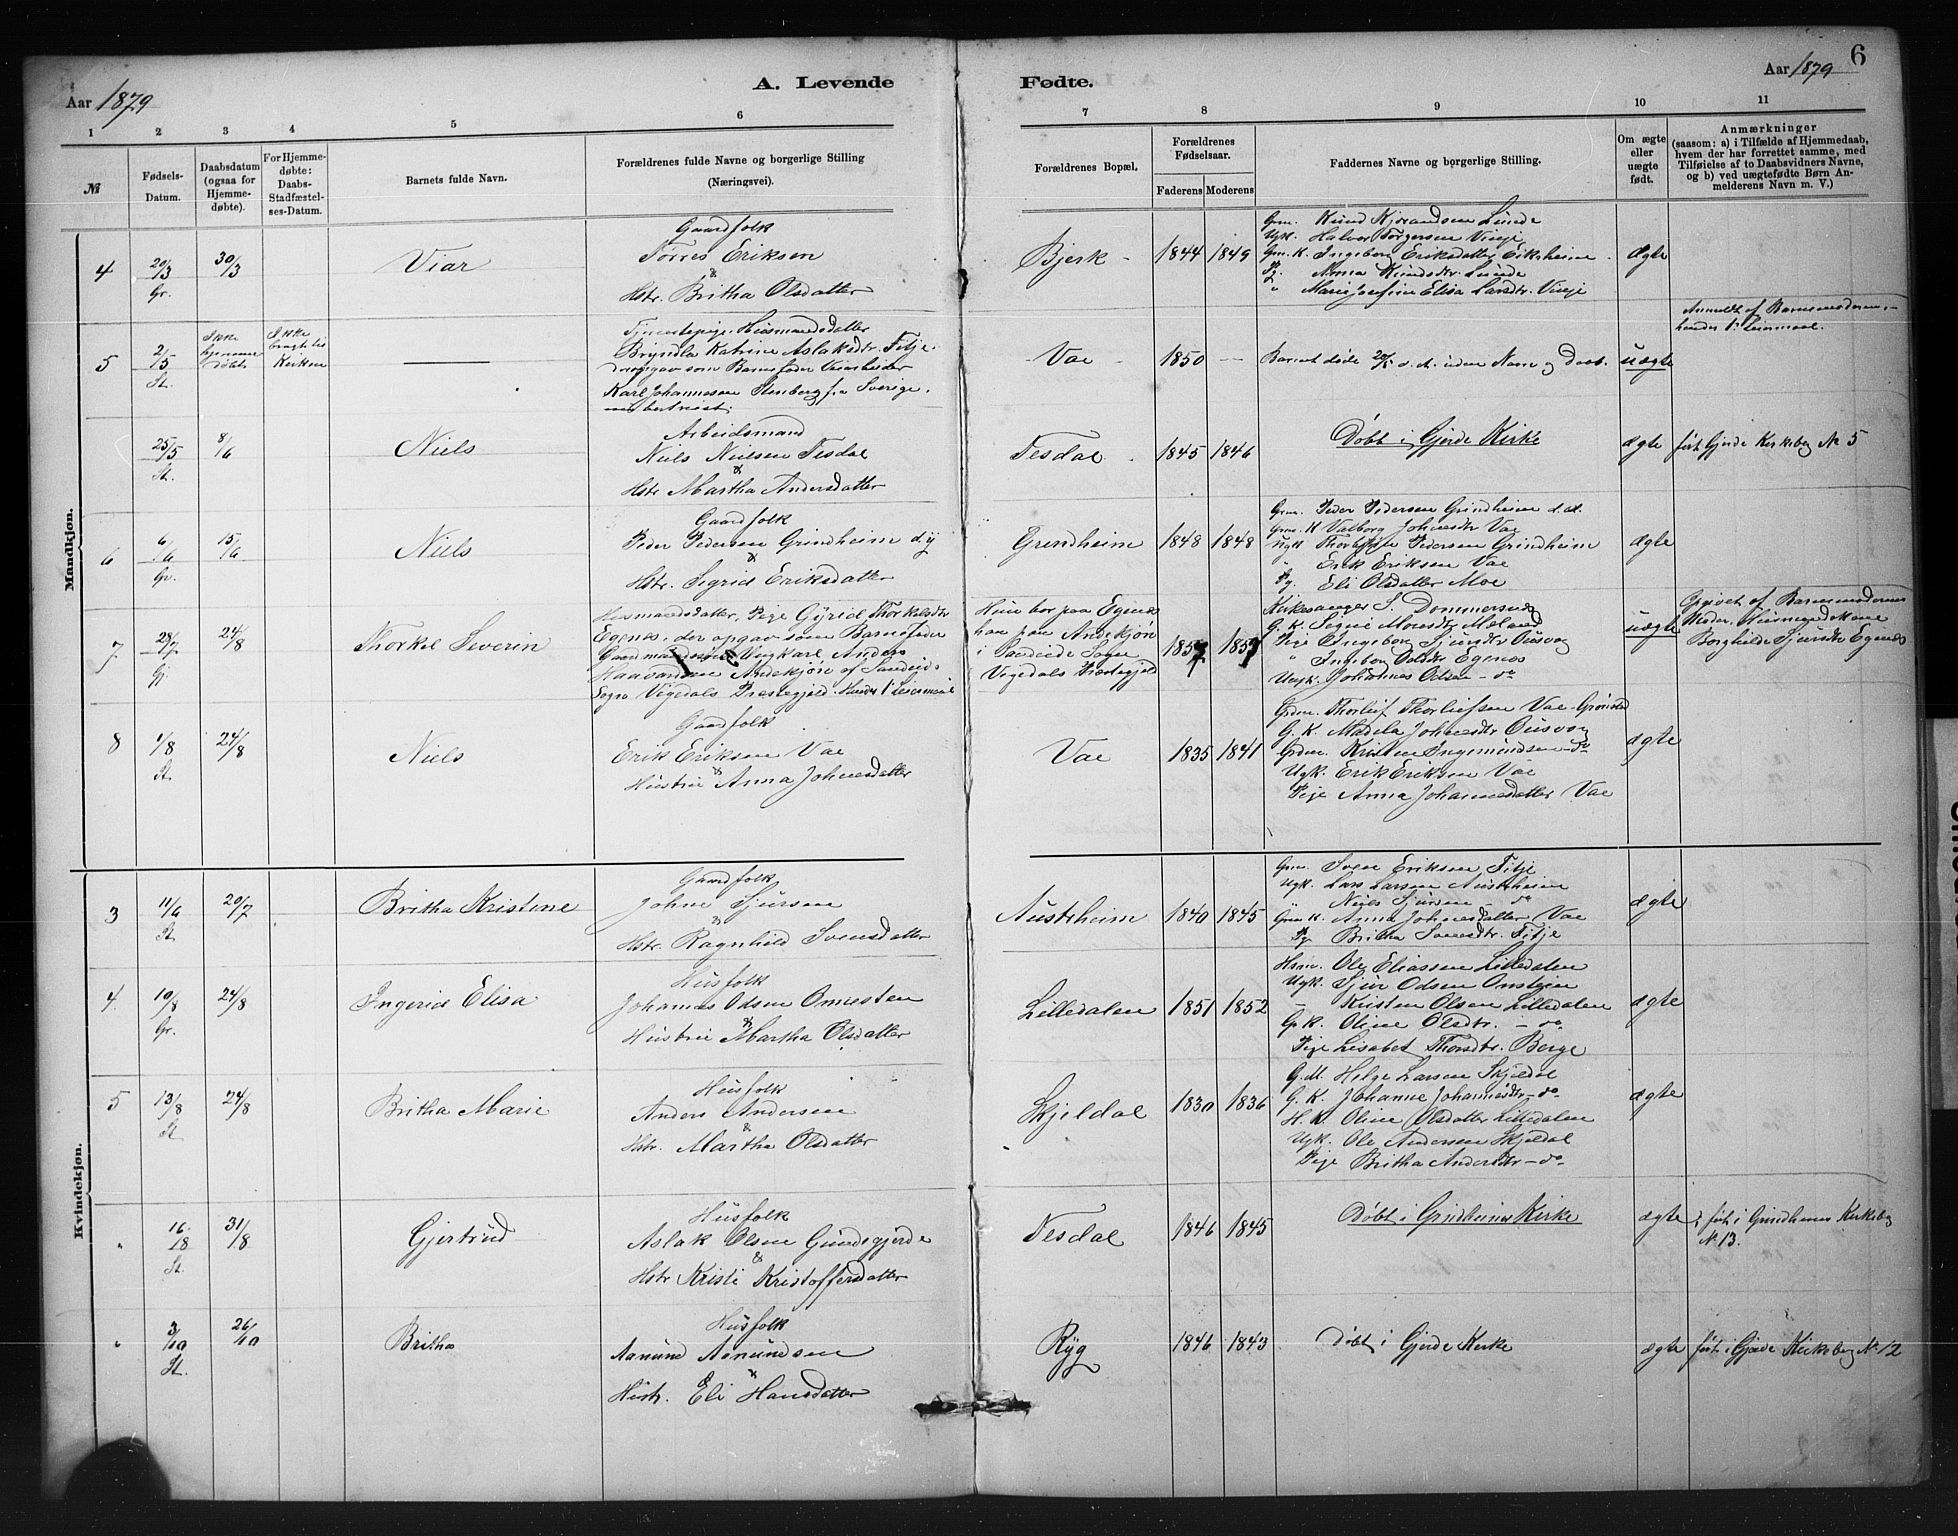 6
Aar 1879
A. Levende
Fødte.
Aar 1879
1 2 3 4 5 6 7 8 9 10 11
№
Fødsels-
Datum.
Daabsdatum
(ogsaa for
Hjemme-
døbte).
For Hjemme-
døbte:
Daabs-
Stadfæstel-
ses-Datum.
Barnets fulde Navn.
Forældrenes fulde Navne og borgerlige Stilling
(Næringsvei).
Forældrenes Bopæl.
Forældrenes
Fødselsaar.
Faderens Moderens
Faddernes Navne og borgerlige Stilling.
Om ægte
eller
uægte
født.
Anmærkninger
(saasom: a) i Tilfælde af Hjemmedaab,
hvem der har forrettet samme, med
Tilføielse af to Daabsvidners Navne,
og b) ved uægtefødte Børn An-
melderens Navn m. V.)
Mandkjøn.
4
20/3
Gr.
30/3
Viar
Gaardfolk
Torres Eriksen
&
Hstr. Britha Olsdatter
Bjerk
1844 1849
Grm. Knud Kjørandsen Lunde
Ugk. Halvor Torgersen Vinje
Gm. K. Ingeborg Eriksdatter Eiksheim
Pg. Anna Knudsdtr. Lunde
" Marie Josefine Elisa Larsdtr. Vinje
Ægte
5
2/5
St.
Ikke
hjemme
døbt
Ikke
bragt til
Kirken
Tjenestepige, Husmandsdatter
Bryndla Katrine Aslaksdtr. Fitje.
der opgav som Barnefader Veiarbeider
Karl Johannesen Stenberg fra Sverige.
Vae
1850
Barnet døde 20/5 s. A. uden Navn og Daab.
uægte
Anmeldt af Barnemoderen,
hendes 1ste Leiermaal.
25/5
St.
8/6
Niels
Arbeidsmand
Niels Nielsen Tesdal
&
Hstr. Martha Andersdatter
Tesdal
1845 1846
Døbt i Gjerde Kirke
ægte
ført Gjerde Kirkebog № 5
6
6/6
Gr.
15/6
Niels
Gaardfolk
Peder Pedersen Grindheim d.y
&
Hstr. Sigrid Eriksdatter
Grindheim
1848 1848
Grm. Peder Pedersen Grindheim d.æl.
Grm. K Valborg Johnesdtr Vae
Ugk Pedersen Grindheim
" Erik Eriksen Vae
Pg. Eli Olsdatter Moe
Ægte
7
28/7
Gj.
24/8
Thorkel Severin
Husmandsdatter, Pige Gyrid Thorkelsdtr
Egenes, der opgav som Barnefader
Gaardmandssøn Ungkarl Anders
Haavardsen Andskjøn af Sandeids
Sogn Vigedals Præstegjeld. Hendes 1ste Leiermaal
Hun bor paa Egenes
han paa Andskjøn
i Sandeids Sogn
Vigedals Præstegjeld
1857 1857
Kirkesanger S. Dommersnæs
G. K. Signe Monsdtr Mæland
Pige Ingeborg Sjursdtr Ousvog
" Ingeborg Egenes
Ungk. Johannes Olsen - do
uægte
Opgivet af Barnemoderens
Moder, Husmandskone
Borghilde Sjursdtr Egenes
8
1/8
St.
24/8
Niels
Gaardfolk
Erik Eriksen Vae
&
Hustru Anna Johnesdatter
Vae
1835 1841
Grdm. Thorleif Thorleifsen Vae-Grønstad
G. K. Madela Johnesdtr Ousvog
Grdm. Kristen Ingemundsen - do
Ugk. Erik Eriksen Vae
Pige Anna Johannesdatter Vae
Ægte
Kvindekjøn.
3
11/6
St.
20/7
Britha Kristene
Gaardfolk
Johne Sjursen
&
Hstr. Ragnhild Svensdatter
Austrheim
1840 1845
Grm. Sven Eriksen Fitje
Ugk. Lars Larsen Austrheim
Niels Sjursen - do
Grm K. Anna Johnesdatter Vae
Pg. Britha Svensdtr. Fitje
Ægte
4
10/8
Gr.
24/8
Ingerid Elisa
Husfolk
Johannes Odsen Omesten
&
Hustru Martha Olsdatter
Lilledalen
1851 1852
Hsm. Ole Eliassen Lilledalen
Ugk. Sjur Odsen
- Kristen Olsen Lilledalen
Gr K. Oline Olsdtr. - do
Pige Lisabet Thorsdtr. Berge
ægte
5
13/8
St
24/8
Britha Marie
Husfolk
Anders Andersen
&
Hstr. Martha Olsdatter
Skjeldal
1830 1836
G.M. Helge Larsen Skjeldal
G. K. Johanne Johannesdtr - do
H. K. Oline Olsdatter Lilledalen
Ugk. Ole Andersen Skjeldal
Pige Britha Andersdtr - do
ægte
"
16/8
St.
31/8
Gjertrud
Husfolk
Aslak Olsen Gundegjerde
&
Hstr Kristi Kristoffersdatter
Tesdal
1846 1845
Døbt i Grindheims Kirke
ægte
ført i Grindheims Kirkebog
№ 13.
"
3/10
St.
26/10
Britha
Husfolk
Aanund Aanundsen
&
Hustr. Eli Hansdatter
Ryg
1846 1843
Døbt i Gjerde Kirke
ægte
ført i Gjerde Kirkebog № 12